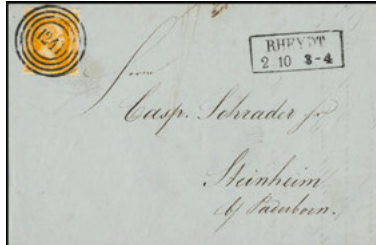 RHEYDT
2 10 3-4
Herrn
Casp. Schrader jr
Steinheim
b/ Paderborn.